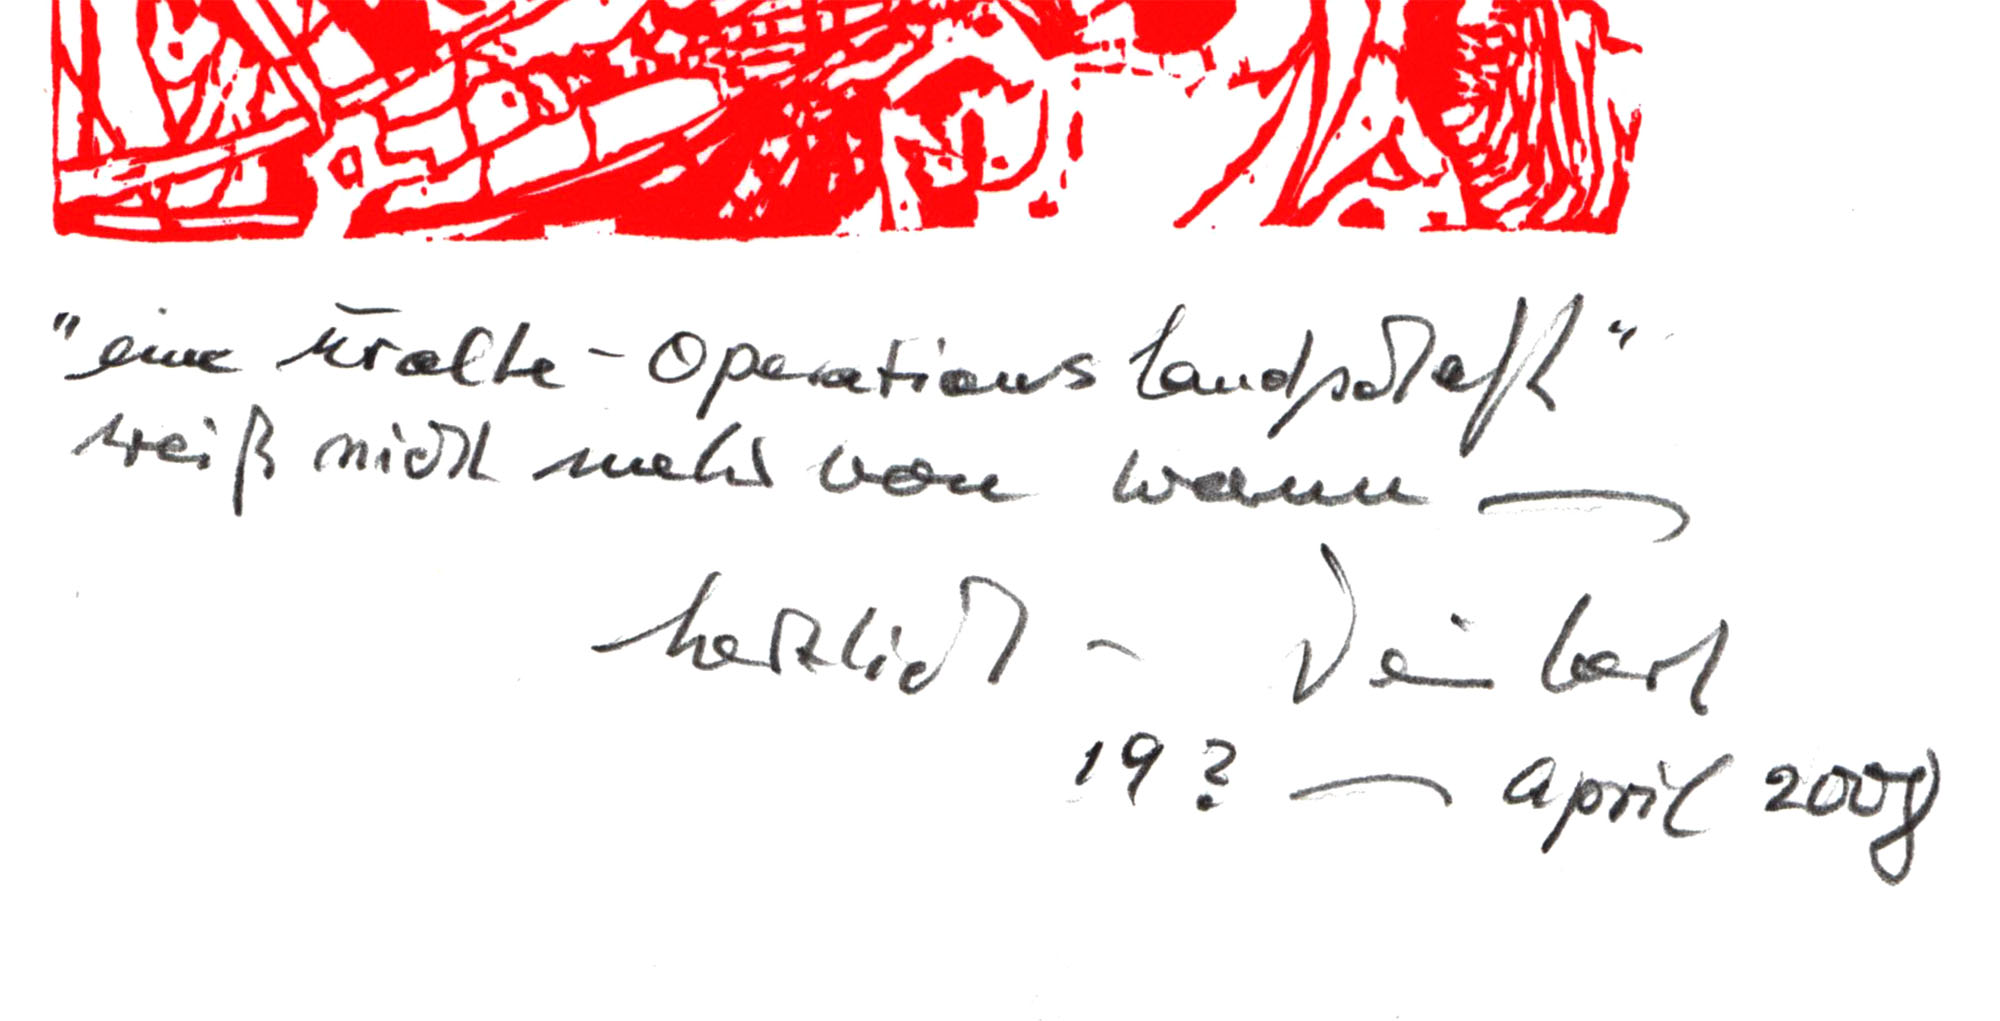 "eine uralte - Operations Landschaft"
weiß nicht mehr von wann —
herzlich -
19? — April 2008